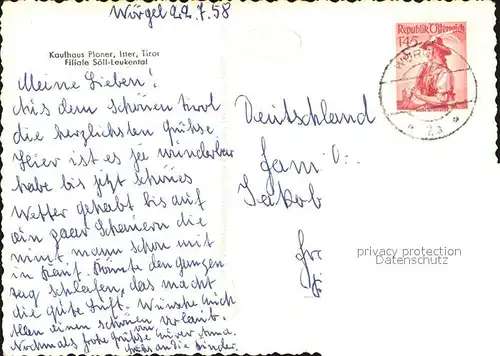 Wörgel 22.7.58
Kaufhaus Ploner, Itter, Tirol
Filiale Söll-Leukental
Meine Lieben!
Aus dem schönen Tirol
die herzlichsten Grühse
Hier ist es so wunderbar
habe bis jetzt schönes
Wetter gehabt bis auf
ein paar Schauern die
nimt mann schon mit
in Kauf. Könnte den ganzen
tag schlafen, das macht
die gute Luft. Wünsche Euch
allen einen schönen Urlaub.
Nochmals frohe Grühse von Eurer Anna.
Grühs an die Kinder.
Republik Österreich
1.45
WÖRGL
2a
Deutschland
Fam
Jakob
privacy protection
Datenschutz